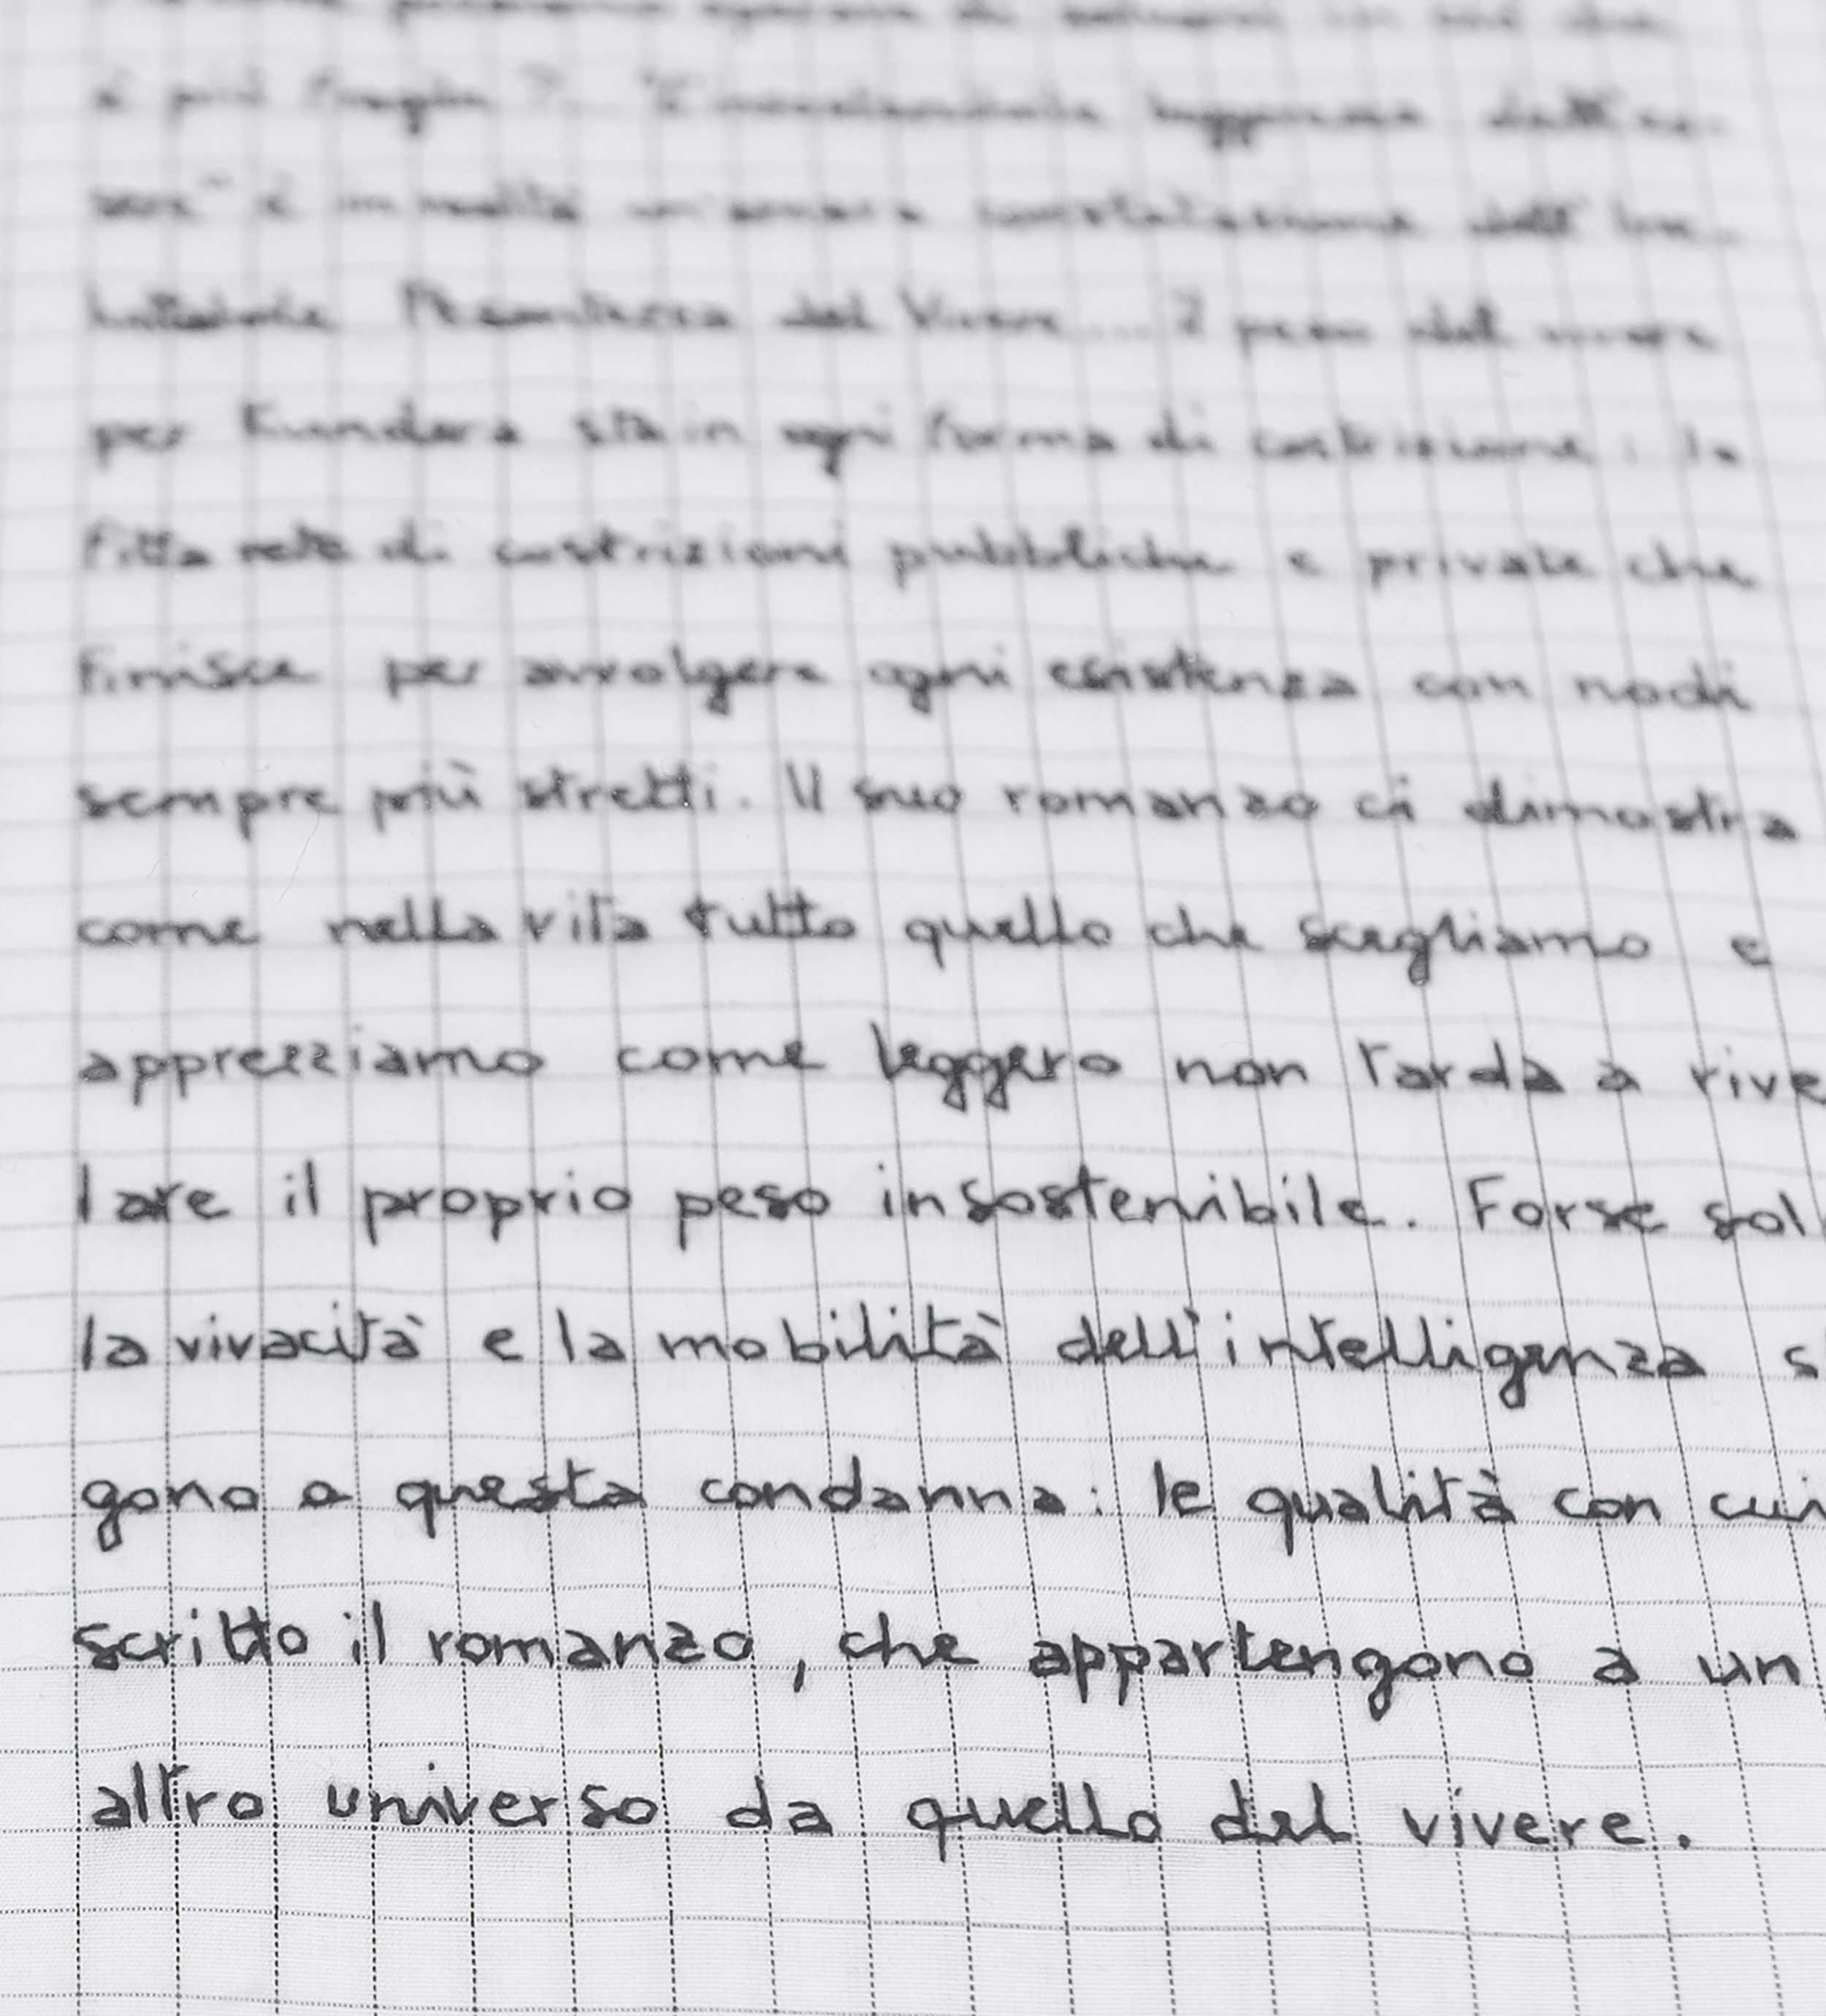 è più fragile?. "L'insostenibile leggerezza dell'es-
sere" è in realtà un'amara constatazione dell'Ine-
luttabile Pesantezza del Vivere... Il peso del vivere
per Kundera sta in ogni forma di costrizione: la
fitta rete di costrizioni pubbliche e private che
finisce per avvolgere ogni esistenza con nodi
sempre più stretti. Il suo romanzo ci dimostra
come nella vita tutto quello che scegliamo e
apprezziamo come leggero non tarda a rive
lare il proprio peso insostenibile. Forse sol
la vivacità e la mobilità dell'intelligenza s
gono a questa condanna: le qualità con cui
scritto il romanzo, che appartengono a un
altro universo da quello del vivere.